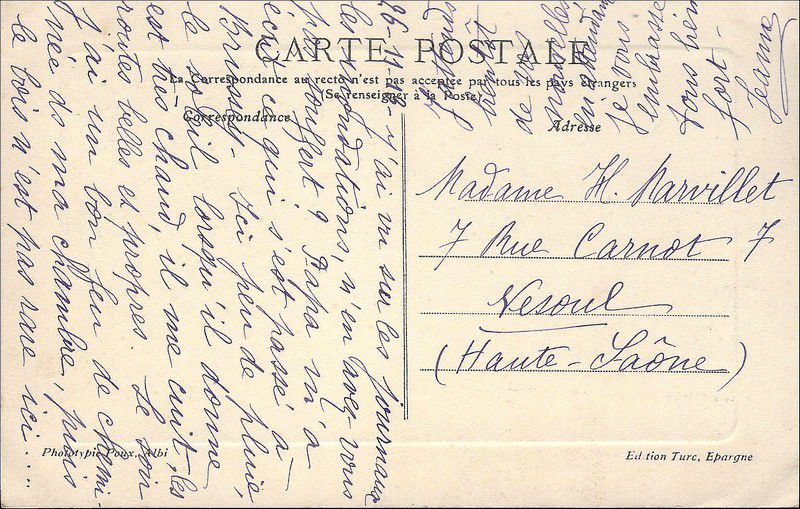 CARTE POSTALE
La Correspondance au recto n'est pas acceptée par tous les pays étrangers
(Se renseigner à la Poste)
Correspondance
Adresse
Madame H. Marvillet
7 Rue Carnot 7
Vesoul
(Haute-Saône)
J'ai vu sur les journaux
les inondations, n'en avez-vous
pas souffert ? Papa m'a
écrit ce qui s'est passé à
Brussol - Ici peu de pluie,
le soleil lorsqu'il donne
est très chaud, il me cuit, les
routes belles et propres. Le soir
j'ai un bon feu de chemi-
née ds ma chambre, puis
le bois n'est pas rare ici....
bientôt
de vos
nouvelles
en attendant
je vous
embrasse
tous bien
fort -
Jeanne
Phototypie Poux, Albi
Ed tion Turc, Epargne